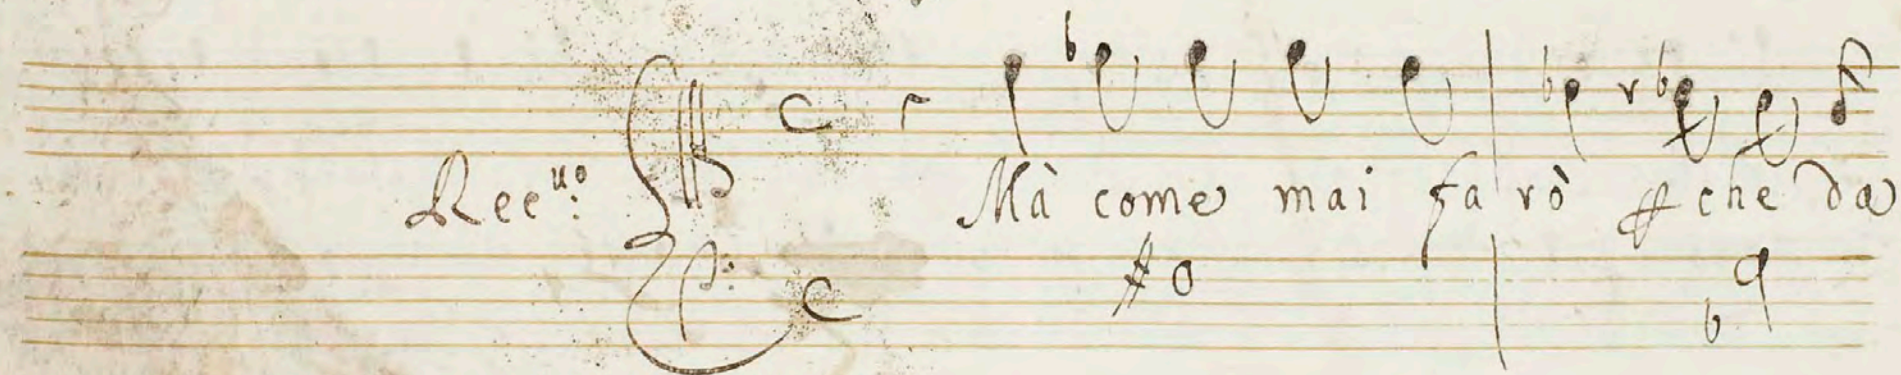 Rec.uo Mà come mai farò che da